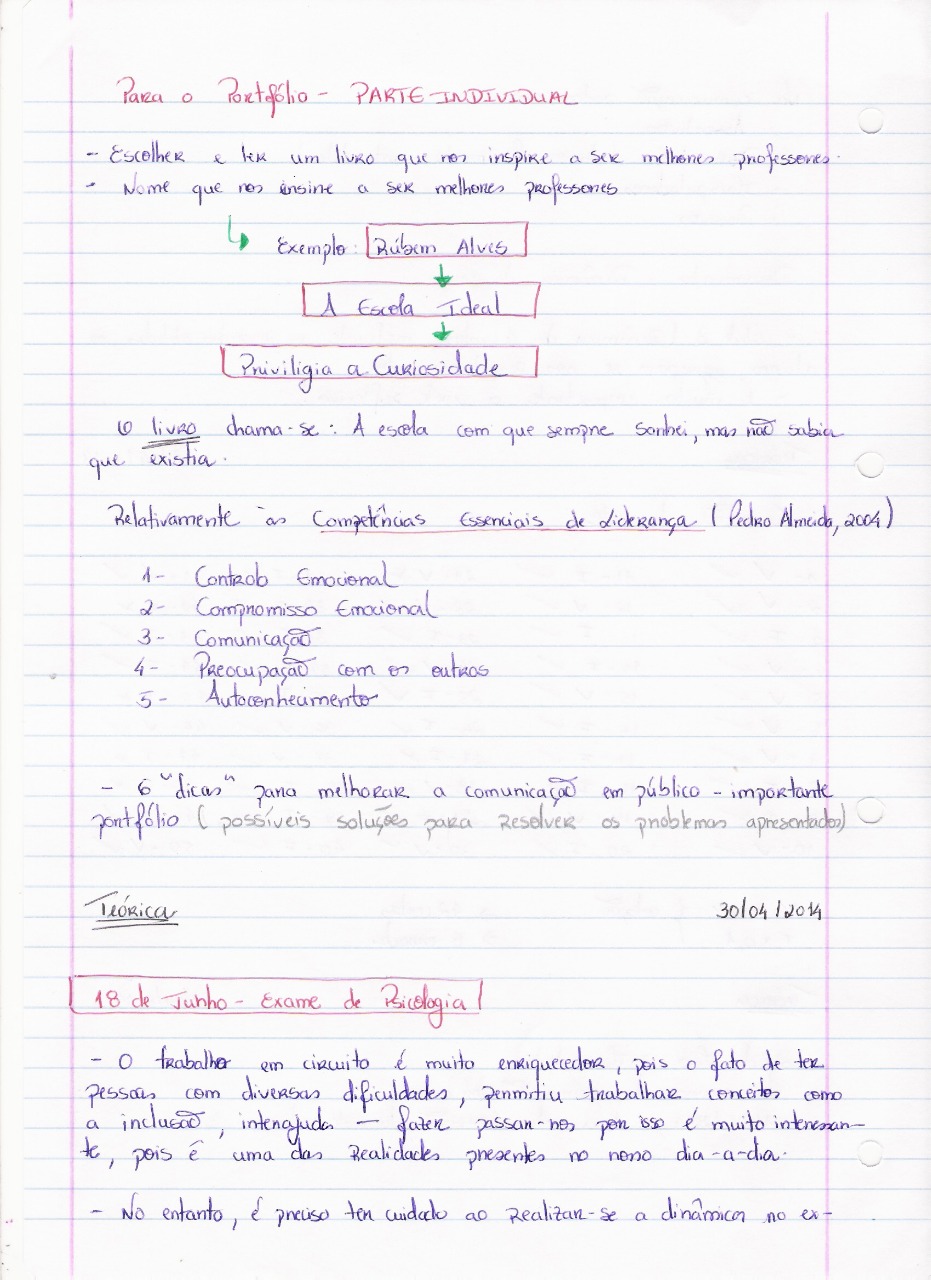 Para o Portefólio - PARTE INDIVIDUAL
- Escolher e ler um livro que nos inspire a ser melhores professores.
- Nome que nos ensine a ser melhores professores
Exemplo: Rúbem Alves
A Escola Ideal
Priviligia a Curiosidade
O livro chama-se: A escola com que sempre sonhei, mas não sabia
que existia.
Relativamente às Competências Essenciais de Liderança (Pedro Almeida, 2004)
1- Controlo Emocional
2- Compromisso Emocional
3- Comunicação
4- Preocupação com os outros
5- Autoconhecimento
- 6 "dicas" para melhorar a comunicação em público - importante
portfólio (possíveis soluções para resolver os problemas apresentados)
Teórica 30/04/2014
18 de Junho - Exame de Psicologia
- O trabalho em circuito é muito enriquecedor, pois o fato de ter
pessoas com diversas dificuldades, permitiu trabalhar conceitos como
a inclusão, interajuda — fazer passar-nos por isso é muito interessan-
te, pois é uma das realidades presentes no nosso dia-a-dia.
- No entanto, é preciso ter cuidado ao realizar-se a dinâmica no ex-